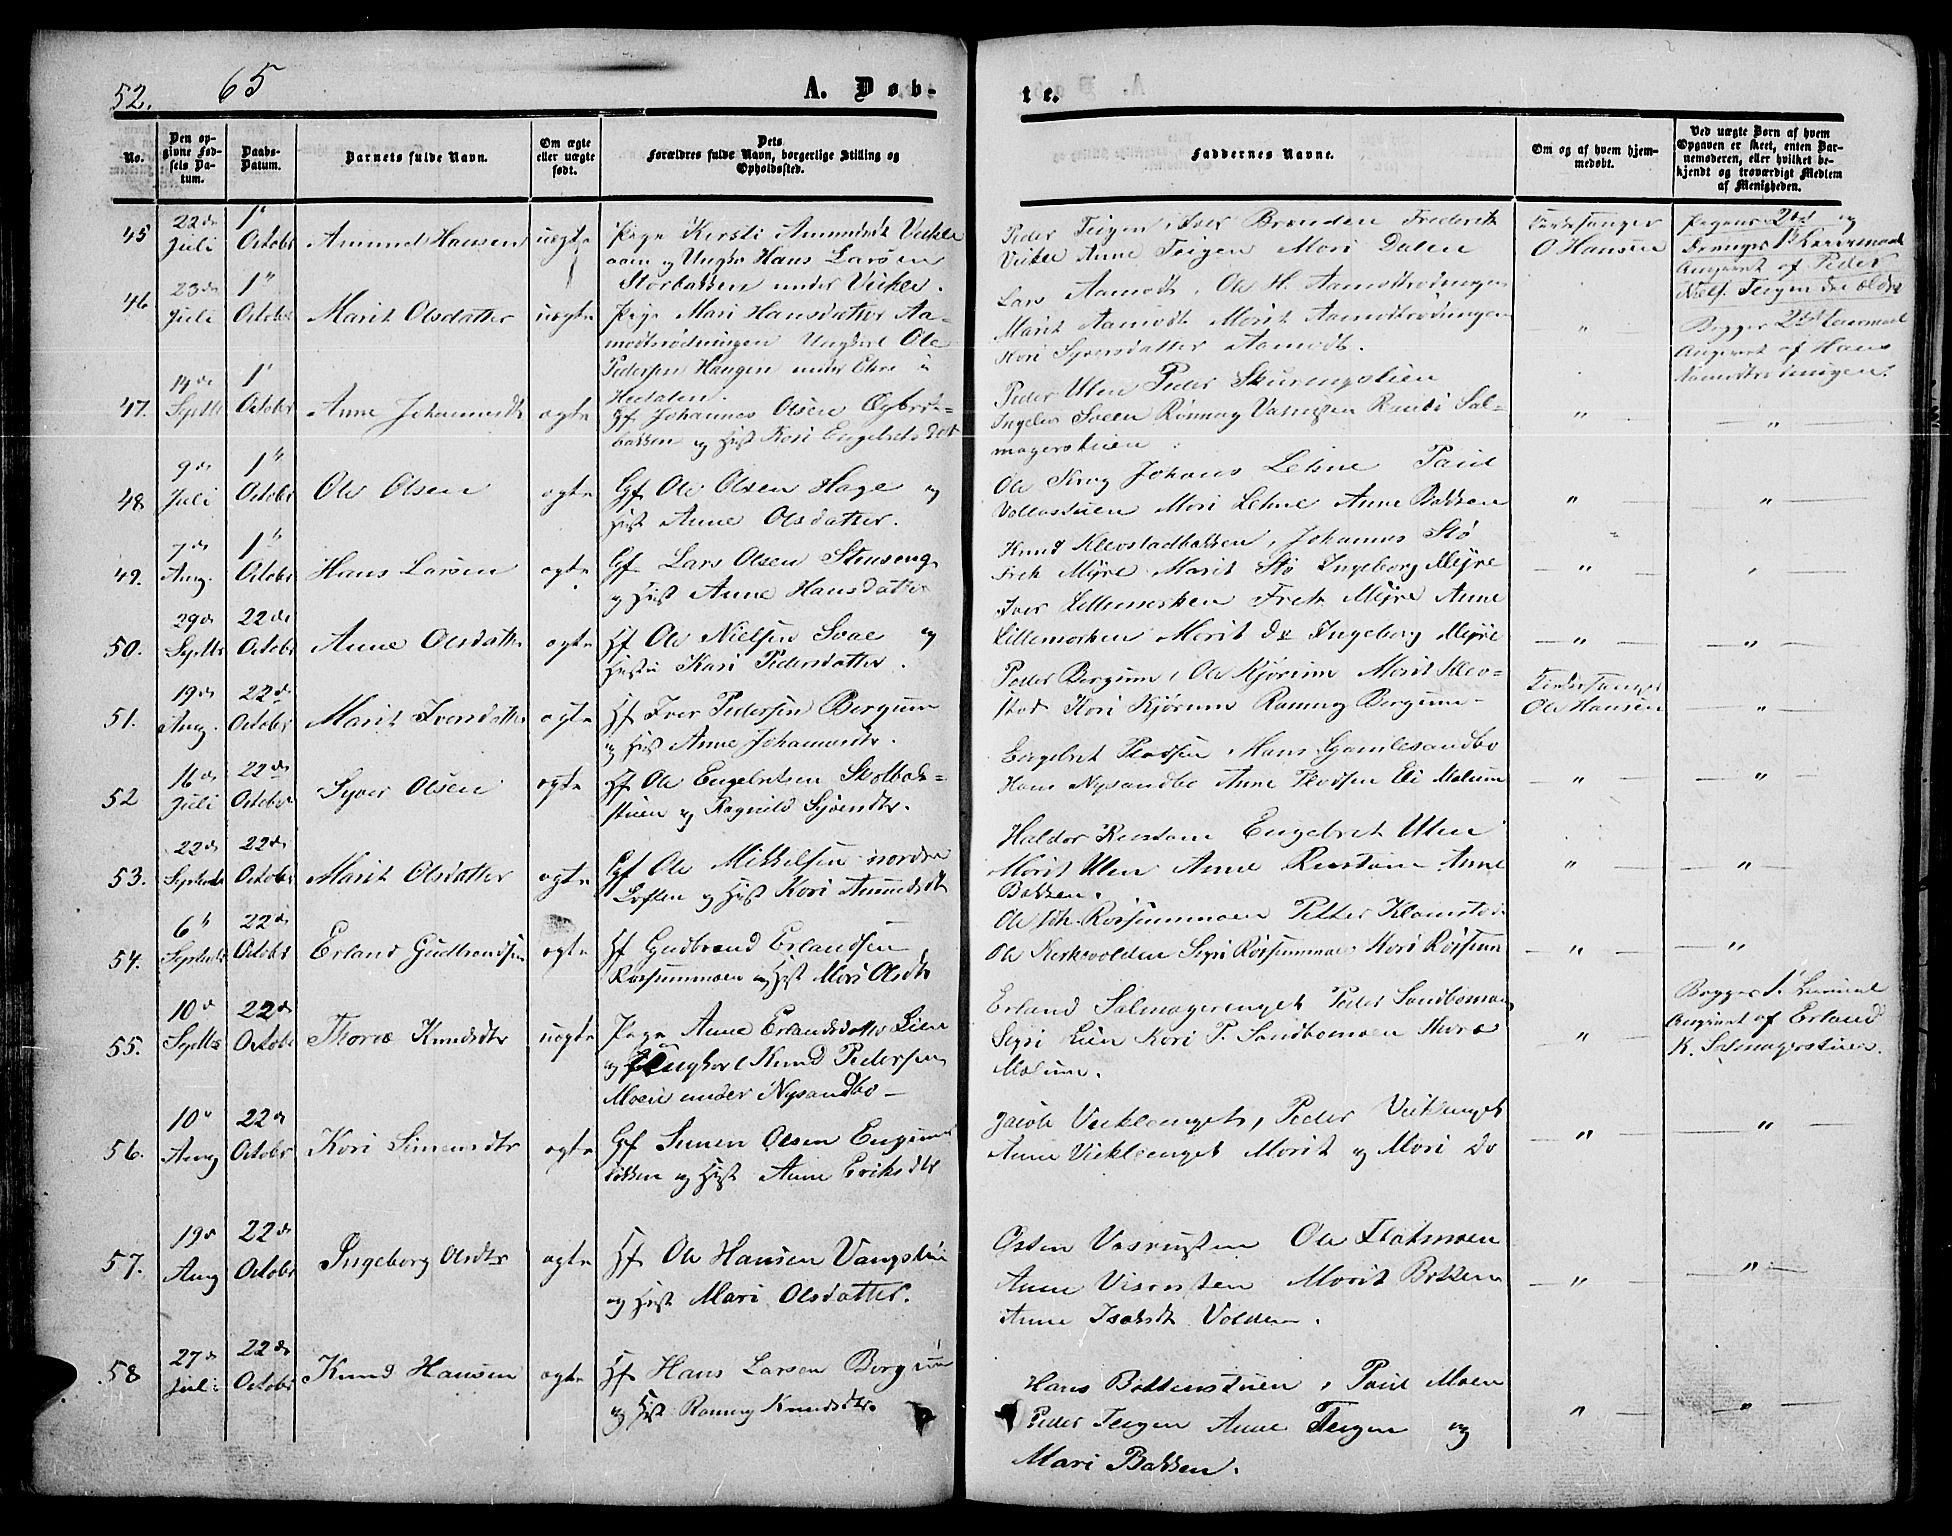 52.
65
A. Døb-
te.
No.
Den op-
givne Fød-
sels Da-
tum.
Daabs-
Datum.
Barnets fulde Navn.
Om ægte
eller uægte
født.
Dets
Forældres fulde Navn, borgerlige Stilling og
Opholdssted.
Faddernes Navne.
Om og af hvem hjem-
medøbt.
Ved uægte Børn af hvem
Opgaven er skeet, enten Bar-
nemoderen, eller hvilket be-
kjendt og troværdigt Medlem
af Menigheden.
45
22de Juli
1ste Octobr
Amund Hansen
uægte
Pige Kersti Amundsdt Veikle
aaen og Ungkr Hans Larsen
Storbakken under Veikle.
Peder Teigen, Iver Brenden Frederik
Veikle Anne Teigen Mari Dalen
Kirkesanger
O Hansen
Pigens 2det og
Drenges 1ste Leiermaal
Angivet af Peder
Niels. Teigen den ældre
46
23de Juli
1"
Octobr
Marit Olsdatter
uægte
Pige Mari Hansdatter Aa-
modtrødningen Ungkarl Ole
Pedersen Haugen under Ekre i
Hedalen.
Lars Aamodt, Ole H. Aamodtrødningen
Marit Aamodt Marit Aamodtrødningen
Kari Syversdatter Aamodt.
"
Begges 2det Leiermaal
Angivet af Hans
Aamodtrødningen.
47.
14de Septbr
1"
Octobr
Anne Johannesdtr
ægte
Hf Johannes Olsen
bakken og Hust Kari Engebretsdat
Peder Ulen Peder Skurengslien
Ingeborg Sveen Rønnaug Vasrusten Randi Sal-
magerstuen.
" "
48
9de Juli
1"
Octobr
Ole Olsen
ægte
Gf Ole Olsen Hage og
Hust Anne Olsdatter.
Ole Krog Johans Lehne Paul
Vollastuen Mari Lehne Anne Bakken
" "
49.
7de Aug.
1"
Octobr
Hans Larsen
ægte
Gf Lars Olsen Stenseng
og Hust Anne Hansdatter
Knud Klevstadbakken, Johannes Stø
Frek Mijre Marit Stø Ingeborg Mijre
" "
50.
29de Septbr
22de
Octobr
Anne Olsdatter
ægte
Hf Ole Nielsen Svae og
Hustru Kari Pedersdatter.
Iver Lillemorken Frek Mijre Anne
Lillemorken Marit do Ingeborg Mijre
" "
51.
19de Aug.
22de
Octobr
Marit Iversdatter
ægte
Hf Iver Pedersen Bergum
og Hust Anne Johannesdtr.
Peder Bergum, Ole Kjørum Marit Klev-
stad Kari Kjørum Rønnaug Bergum
Kirkesanger
Ole Hansen
"
52
16de Juli
22de
Octobr
Syver Olsen
ægte
Hf Ole Engebretsen Skolbak-
stuen og Ragnild Syversdtr.
Engebret Pladsen, Hans Gamlesandbo
Hans Nysandbo Anne Pladsen Eli Melum
" "
53.
22de Septembr
22de
Octobr
Marit Olsdatter
ægte
Gf Ole Mikkelsen nordre
Loften og Hust Kari Amundsdtr
Haldor Rustom Engebret Ulen
Marit Ulen Anne Rustom Anne
Bakken.
" "
54.
6te Septbr
22de
Octobr
Erland Gudbrandsen
ægte
Hf Gudbrand Erlandsen
Røssummoen og Hust Mari Olsdtr
Ole Joh. Røssummoen Petter Klomstad
Ole Kirkevolden Sigri Røssummoen Kari Røssum
" "
55.
10de
Septbr
22de
Octobr
Thorø Knudsdtr
uægte
Pige Anne Erlandsdatter Lien
og Ungkarl Knud Pedersen
Moen under Nysandbo
Erland Salmagerenget Peder Sandbomoen
Sigri Lien Kari P. Sandbomoen Thorø
Melum.
"
Begges 1ste Leiermaal
Angivet af Erland
K. Salmagerstuen.
56.
10de
Aug
22de
Octobr
Kari Simensdtr
ægte
Gf Simen Olsen
bakken og Hust Anne Eriksdtr
Jacob Veikleenget, Peder Veikleenget
Anne Veikleenget Marit og Mari Do
" "
57.
19de
Aug
22de
Octobr
Ingeborg Olsdtr
ægte
Hf Ole Hansen Vangstuen
og Hust Mari Olsdatter.
Østen Vasrusten Ole Flatmoen
Anne Visrusten Marit Bakken
Anne Isaksdt Volden.
" "
58
27de
Juli
22de
Octobr
Knud Hansen
ægte
Hf Hans Larsen Bergum
og Hust Rønnaug Knudsdtr.
Hans Bottenstuen, Paul Moen
Peder Teigen Anne Teigen og
Mari Bakken.
" "